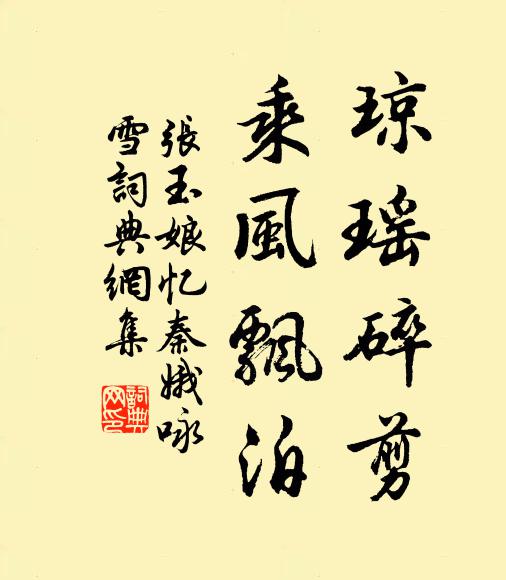 琼瑶碎剪
乘風飄泊
張玉娘忆秦娥咏
雪詞典網集
詞典
网印